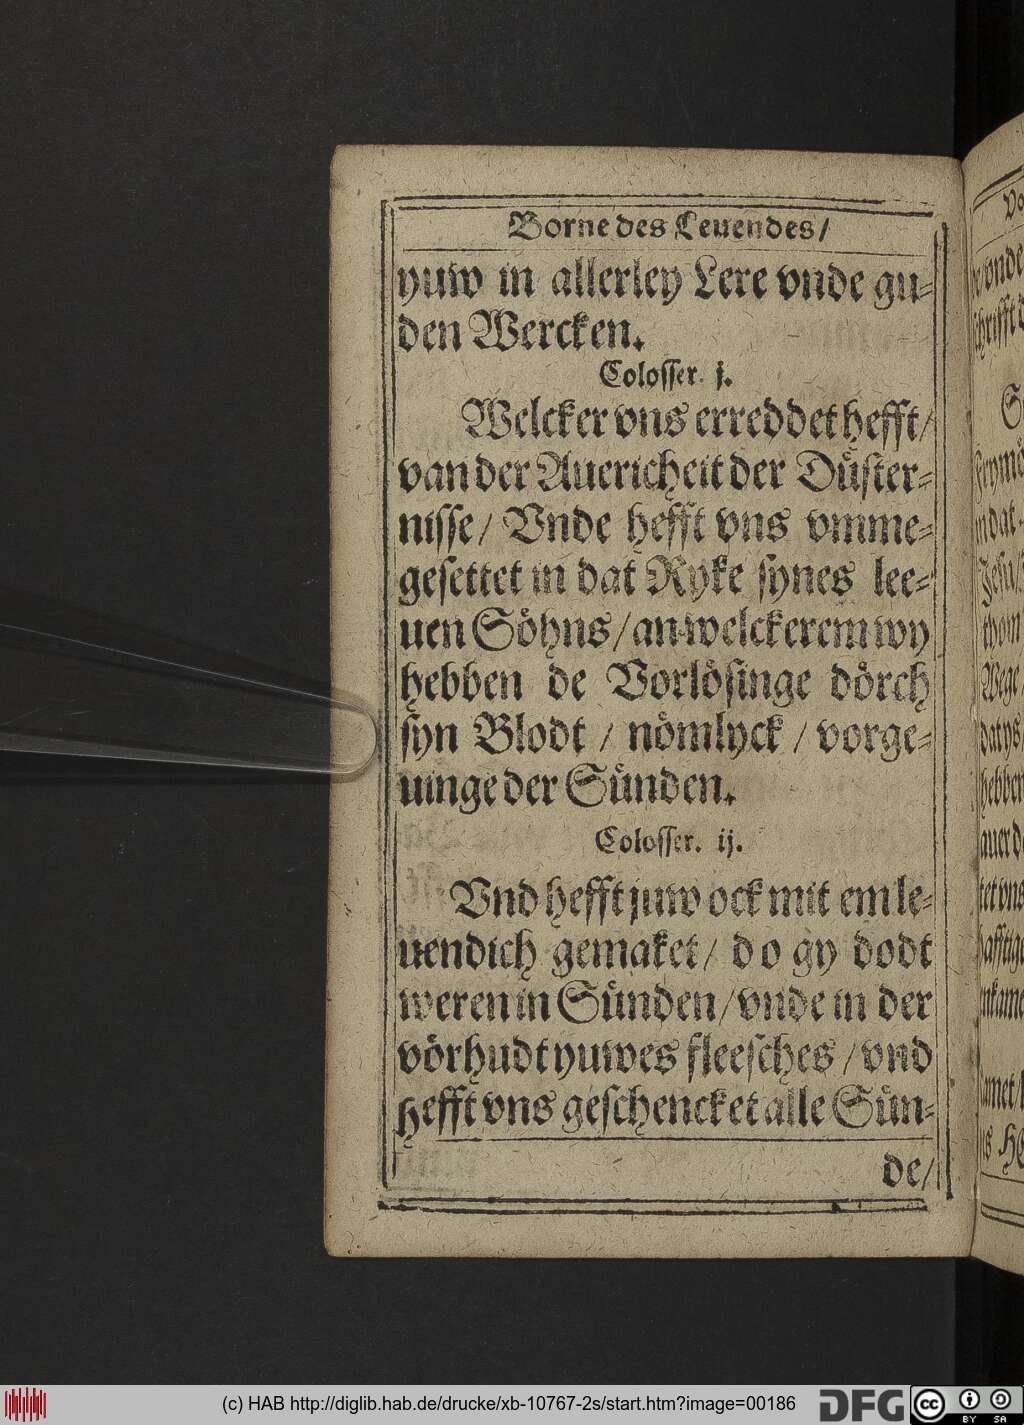 Borne des Leuendes/
yuw in allerley Lere vnde gu⸗
den Wercken.
Colosser. j.
Welcker vns erreddet hefft/
van der Auericheit der Düster⸗
nisse/ Vnde hefft vns vmme⸗
gesettet in dat Ryke synes lee⸗
uen Söhns/ an welckerem wy
hebben de Vorlösinge dörch
syn Blodt / nömlyck / vorge⸗
uinge der Sünden.
Colosser. ij.
Vnd hefft juw ock mit em le⸗
uendich gemaket/ do gy dodt
weren in Sünden/ vnde in der
vörhudt yuwes fleesches / vnd
hefft vns geschencket alle Sün⸗
de/
(c) HAB http://diglib.hab.de/drucke/xb-10767-2s/start.htm?image=00186
DFG
cc
BY SA